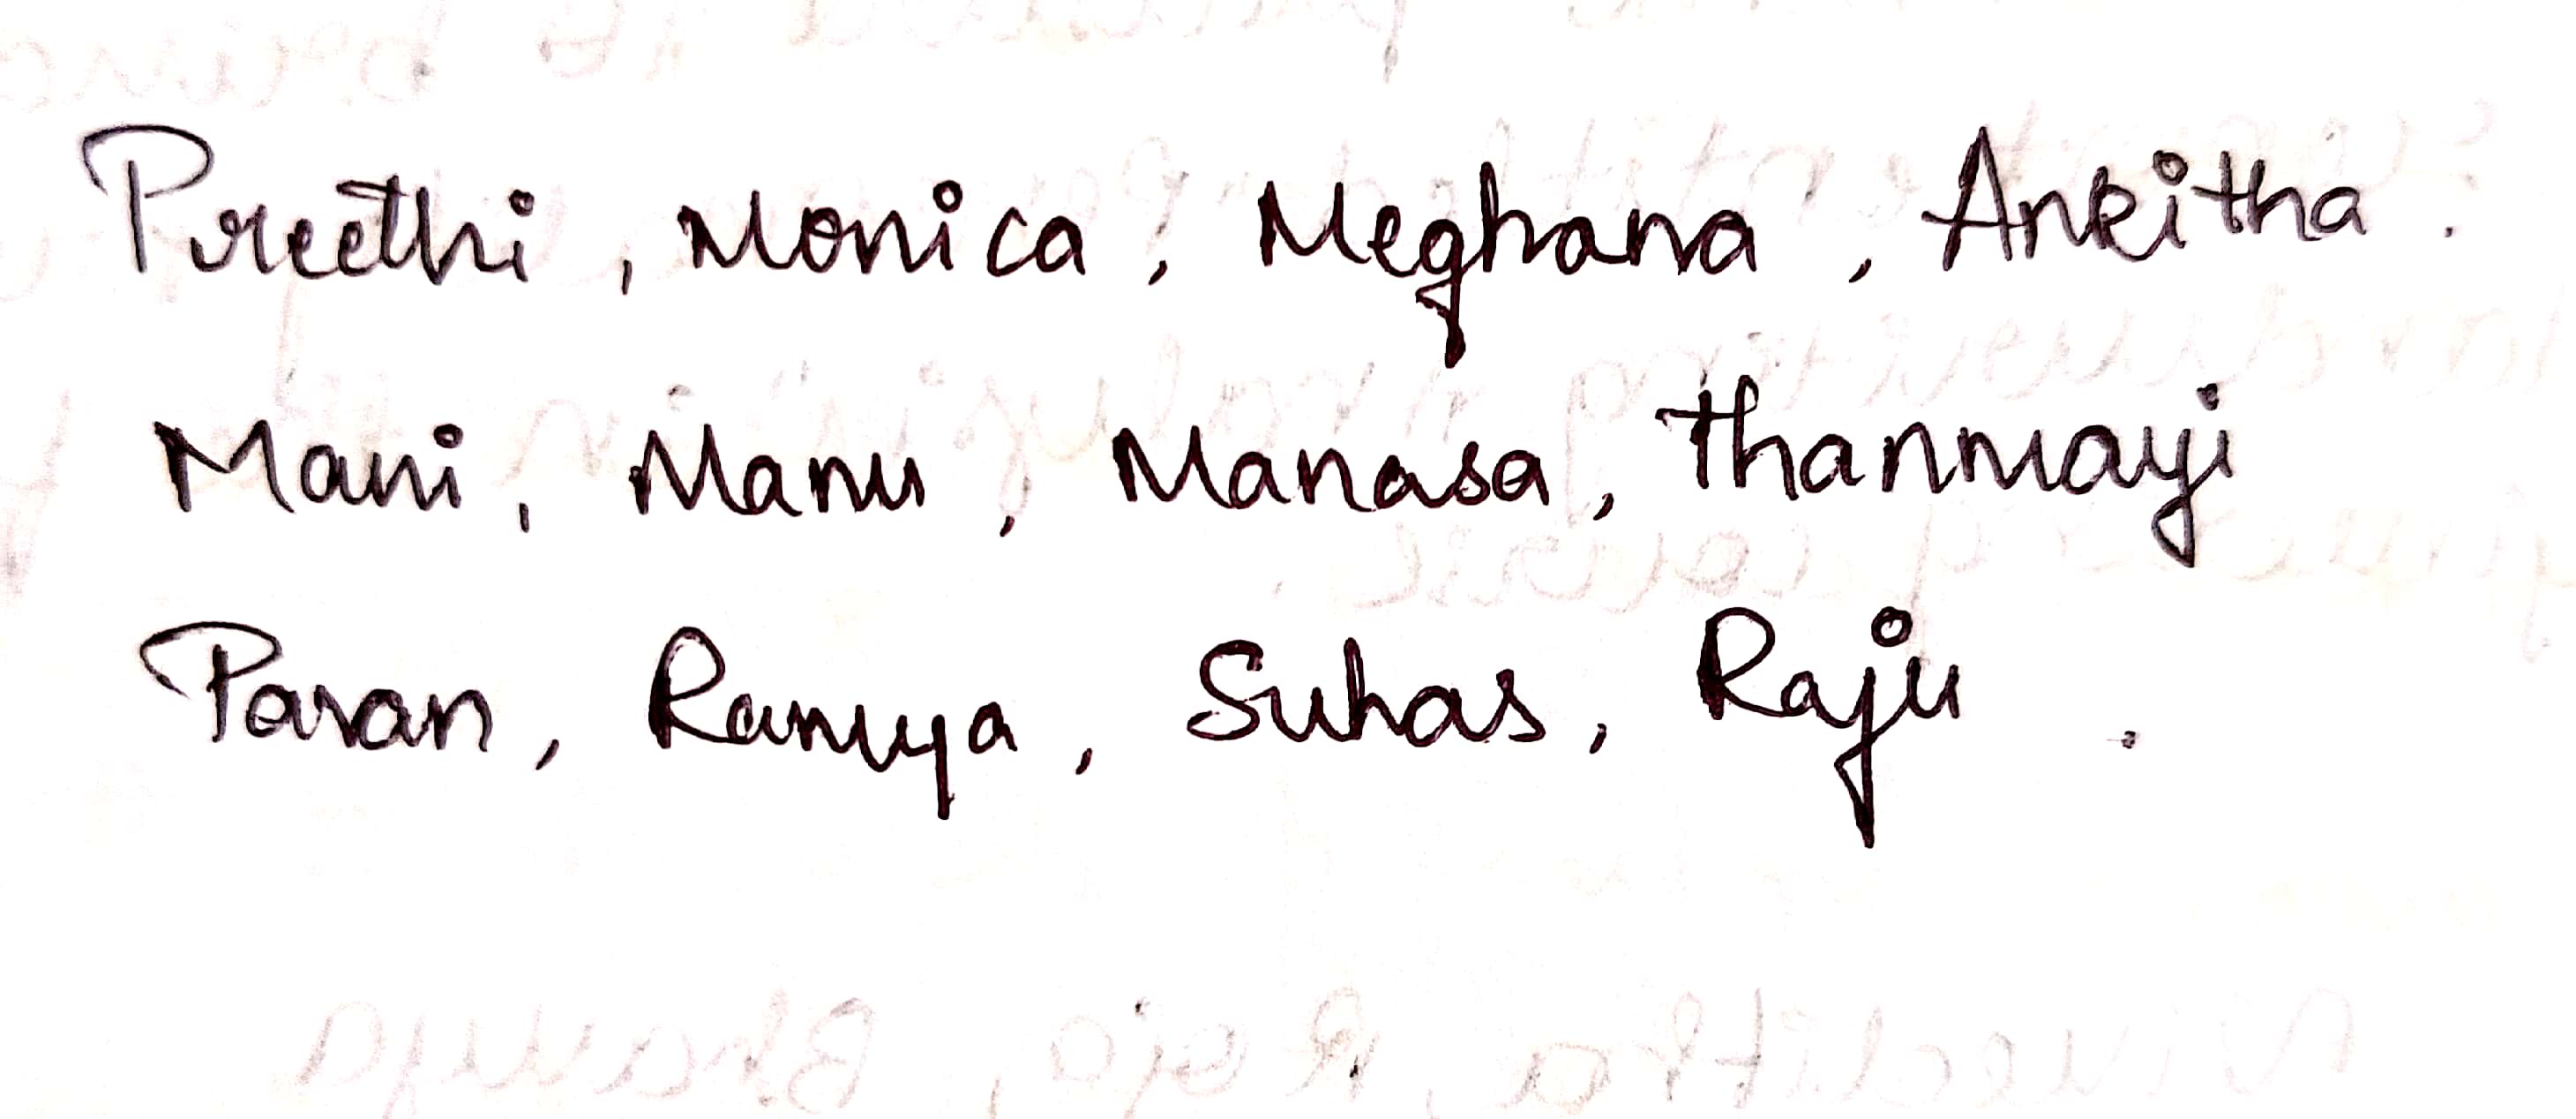 Preethi, Monica, Meghana, Ankitha.
Mani, Manu, Manasa, Thanmayi
Pavan, Ramya, Suhas, Raju.